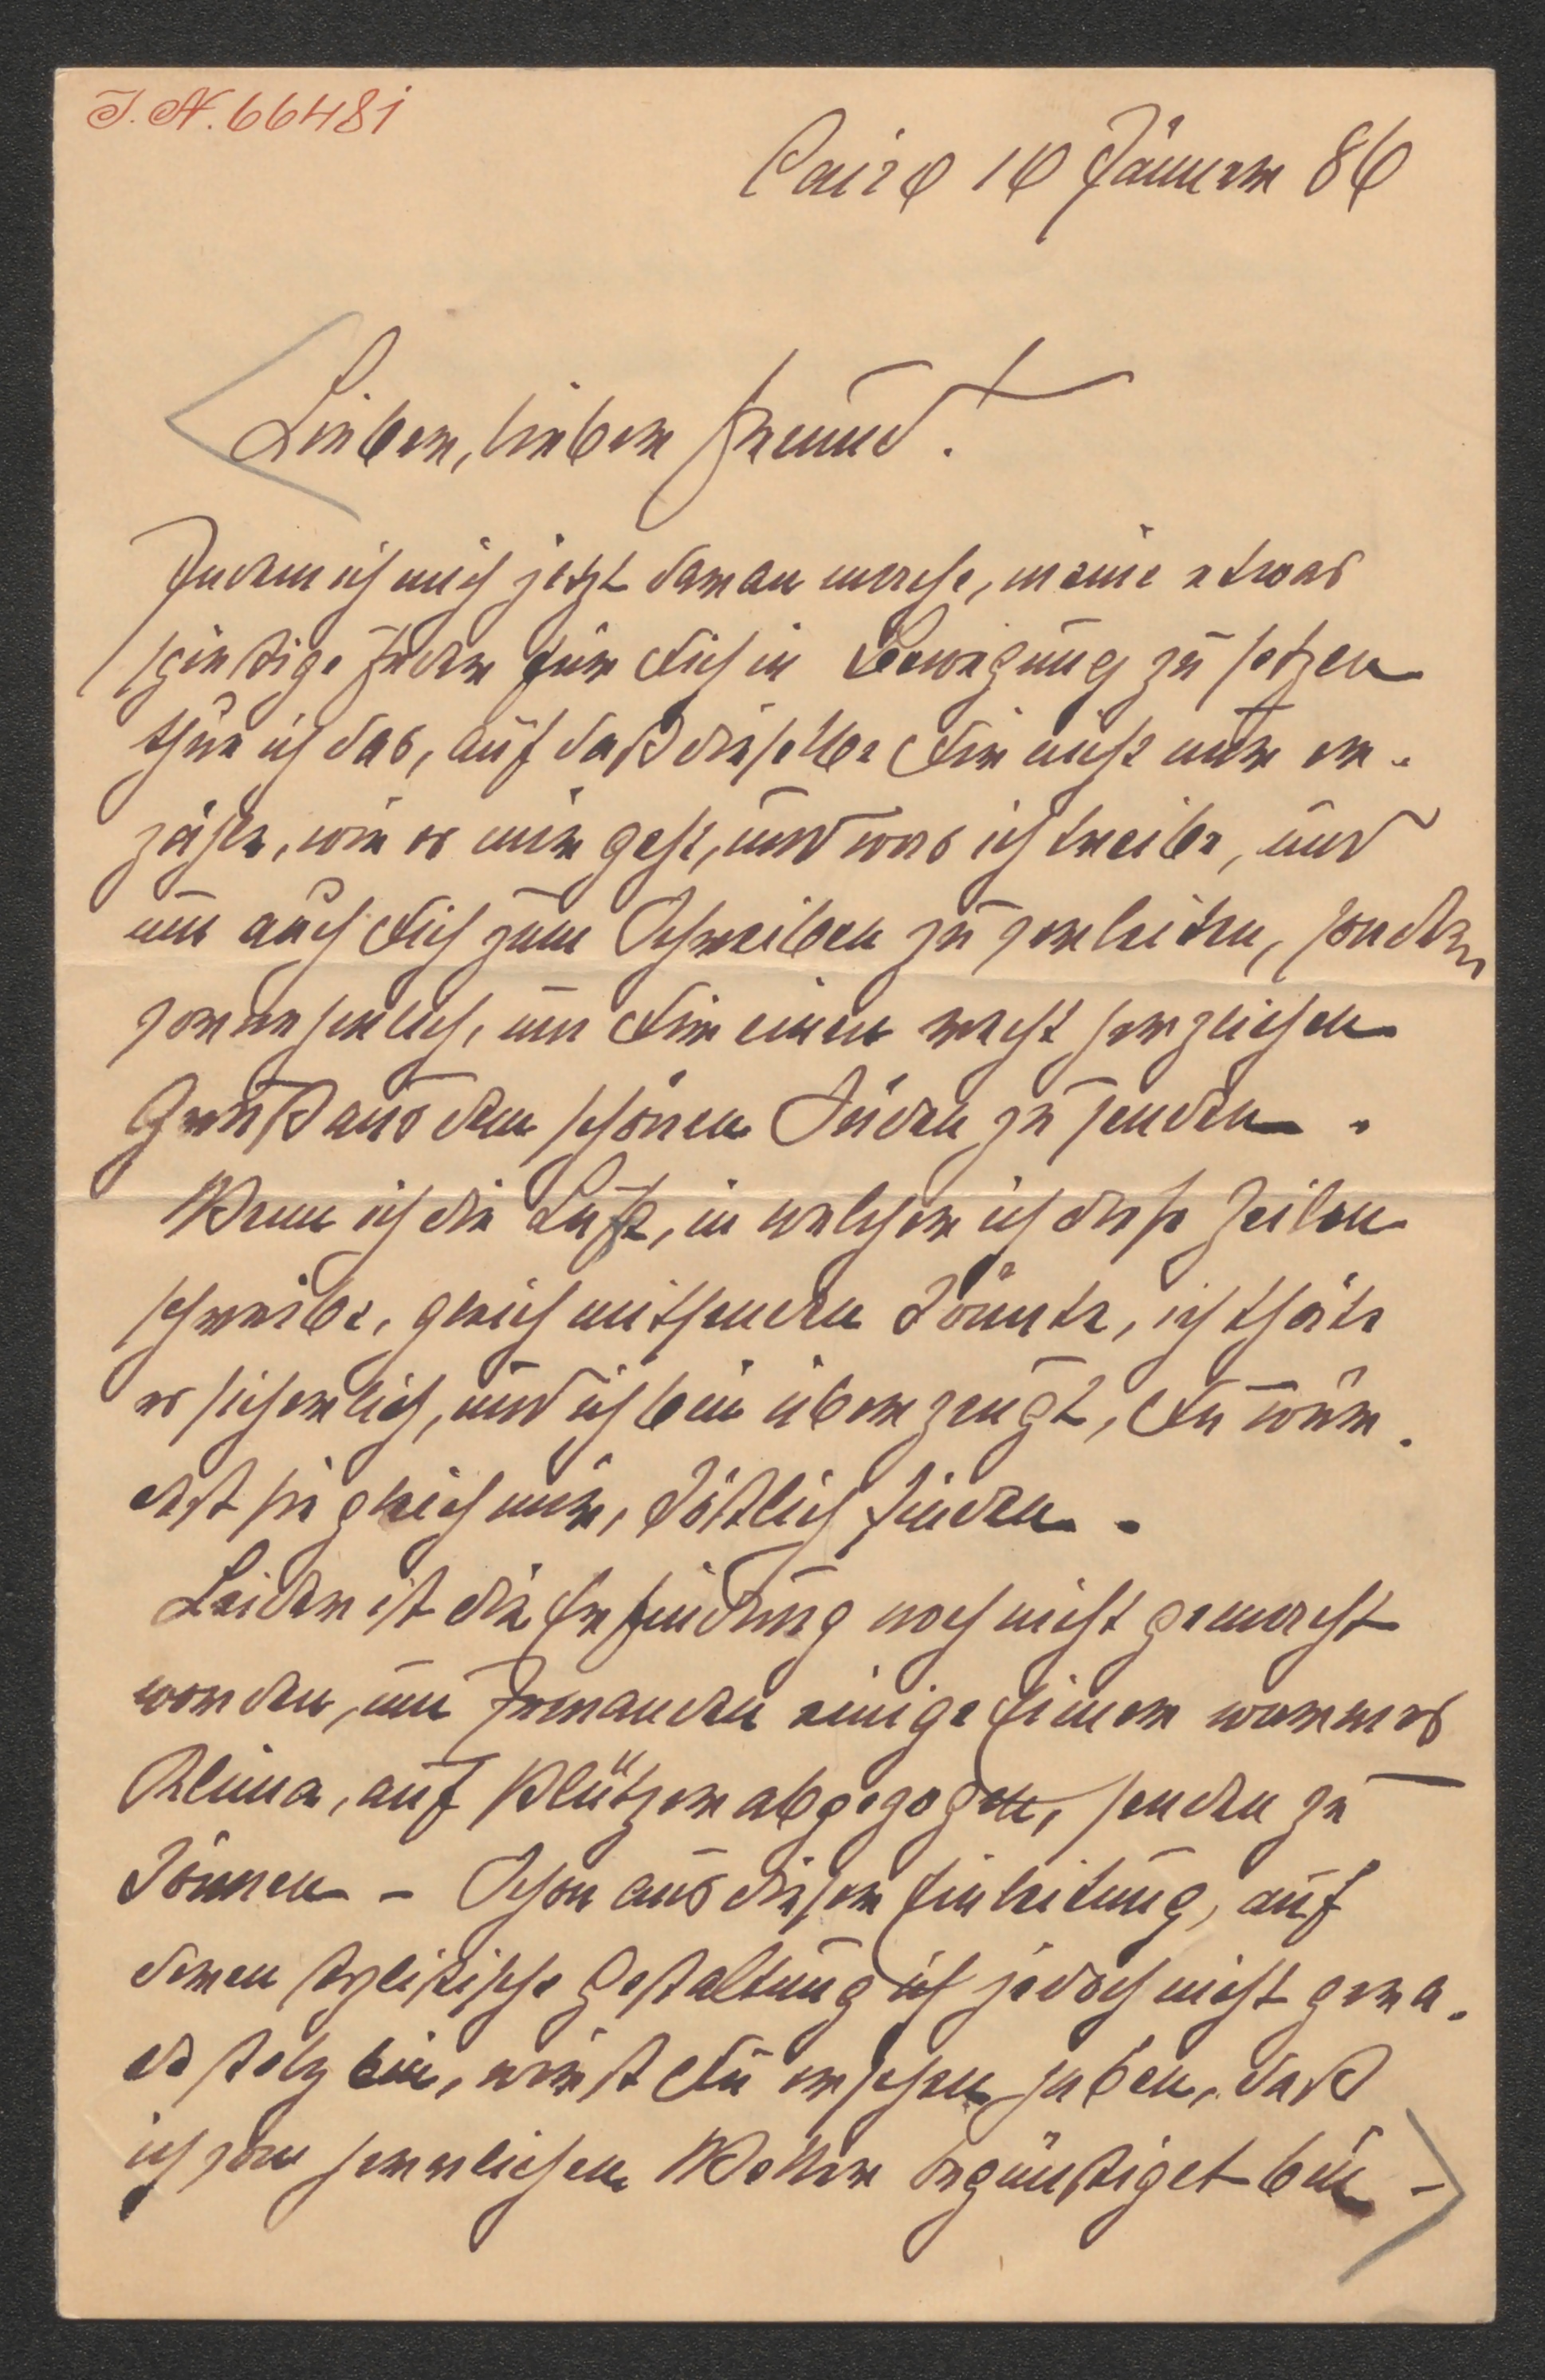 I. N. 66481
Cairo 10 Jänner 86
Lieber, lieber Freund.
Indem ich mich jetzt daran mache, meine etwas
Feder für Dich in Bewegung zu setzen
thue ich das, auf daß dieselbe Dir nicht nur er-
zähle, wie es mir geht, und was ich treibe, und
um auch Dich zum Schreiben zu verleiten, sondern
vornehmlich, um Dir einen recht herzlichen
Gruß aus dem schönen Süden zu senden.
Wenn ich die Luft, in welcher ich diese Zeilen
schreibe, gleich mitsenden könnte, ich thäte
es sicherlich, und ich bin überzeugt, Du wür-
dest sie gleich mir, köstlich finden.
Leider ist die Erfindung noch nicht gemacht
worden, um Jemanden einige Eimer warmes
Klima, auf Plützer abgezogen, senden zu
können - Schon aus dieser Einleitung, auf
deren stylistische Gestaltung ich jedoch nicht gera-
de stolz bin, wirst Du ersehen haben, daß
ich vom herrlichen Wetter begünstiget bin -